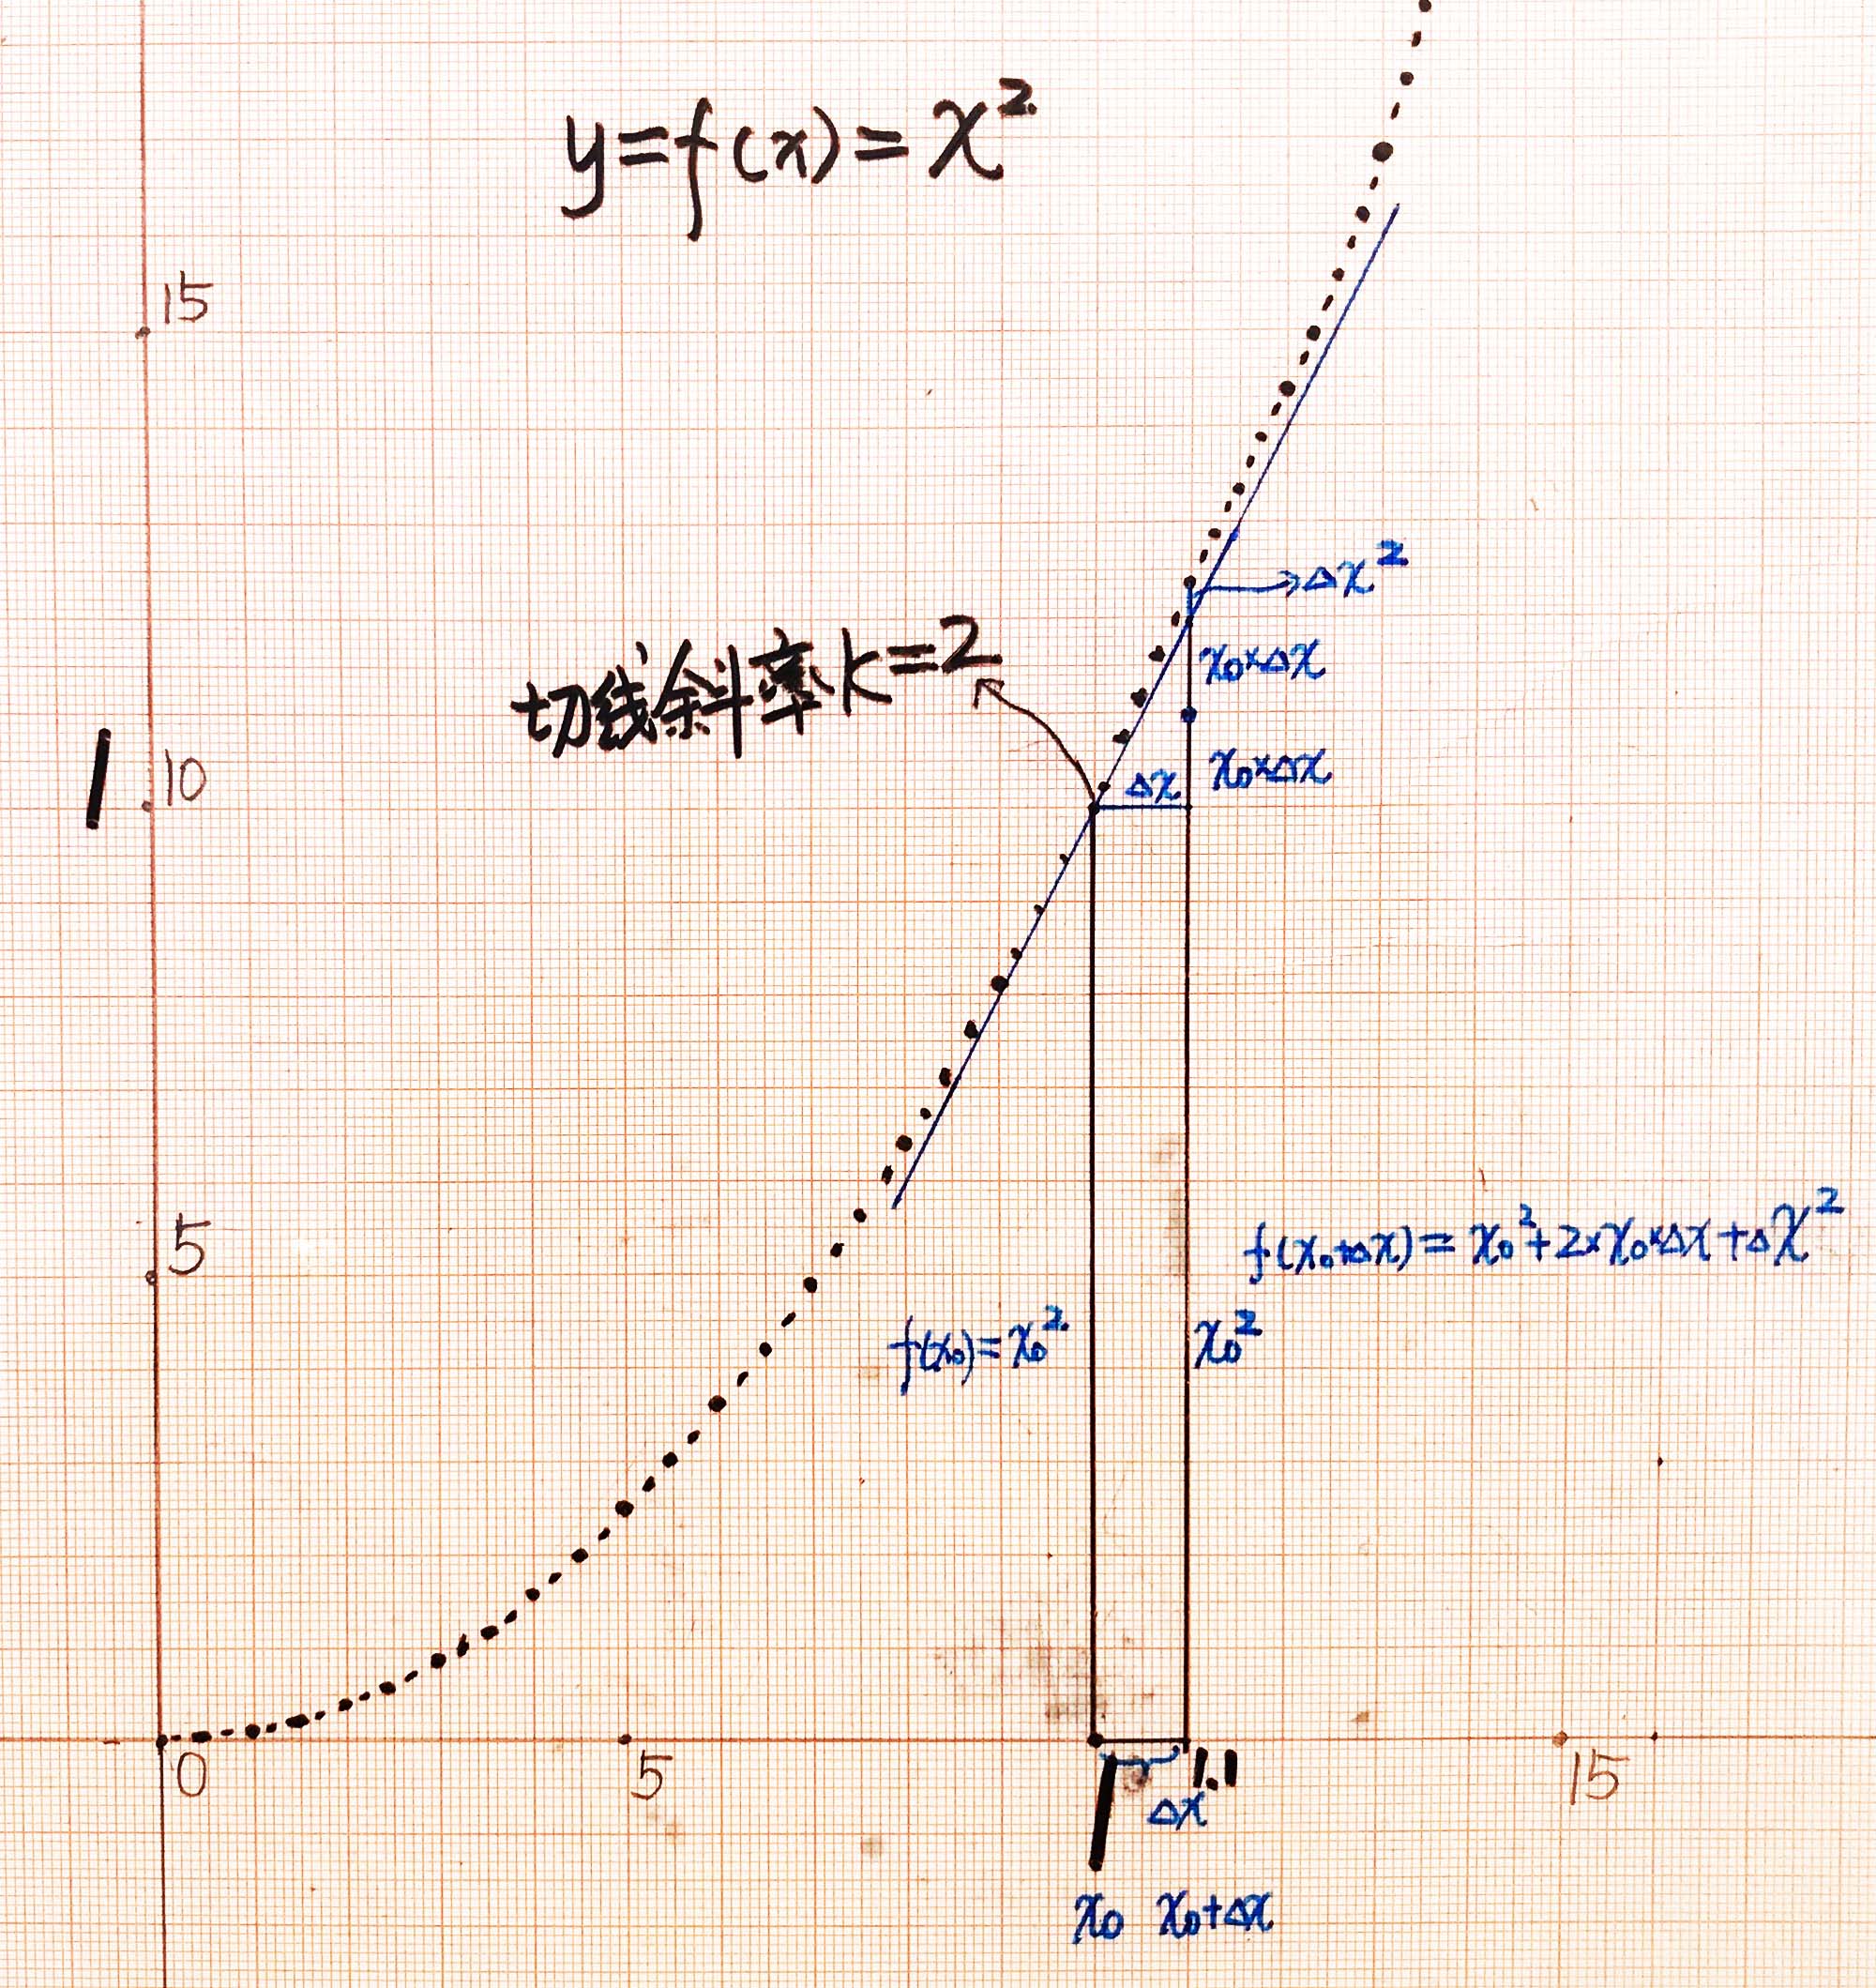 y=f(x)=x²
15
→Δx²
切线斜率k=2
x₀×Δx
1
10
Δx
x₀×Δx
5
f(x₀+Δx)=x₀²+2×x₀×Δx+Δx²
f(x₀)=x₀²
x₀²
0
5
1
1.1
15
Δx
x₀
x₀+Δx